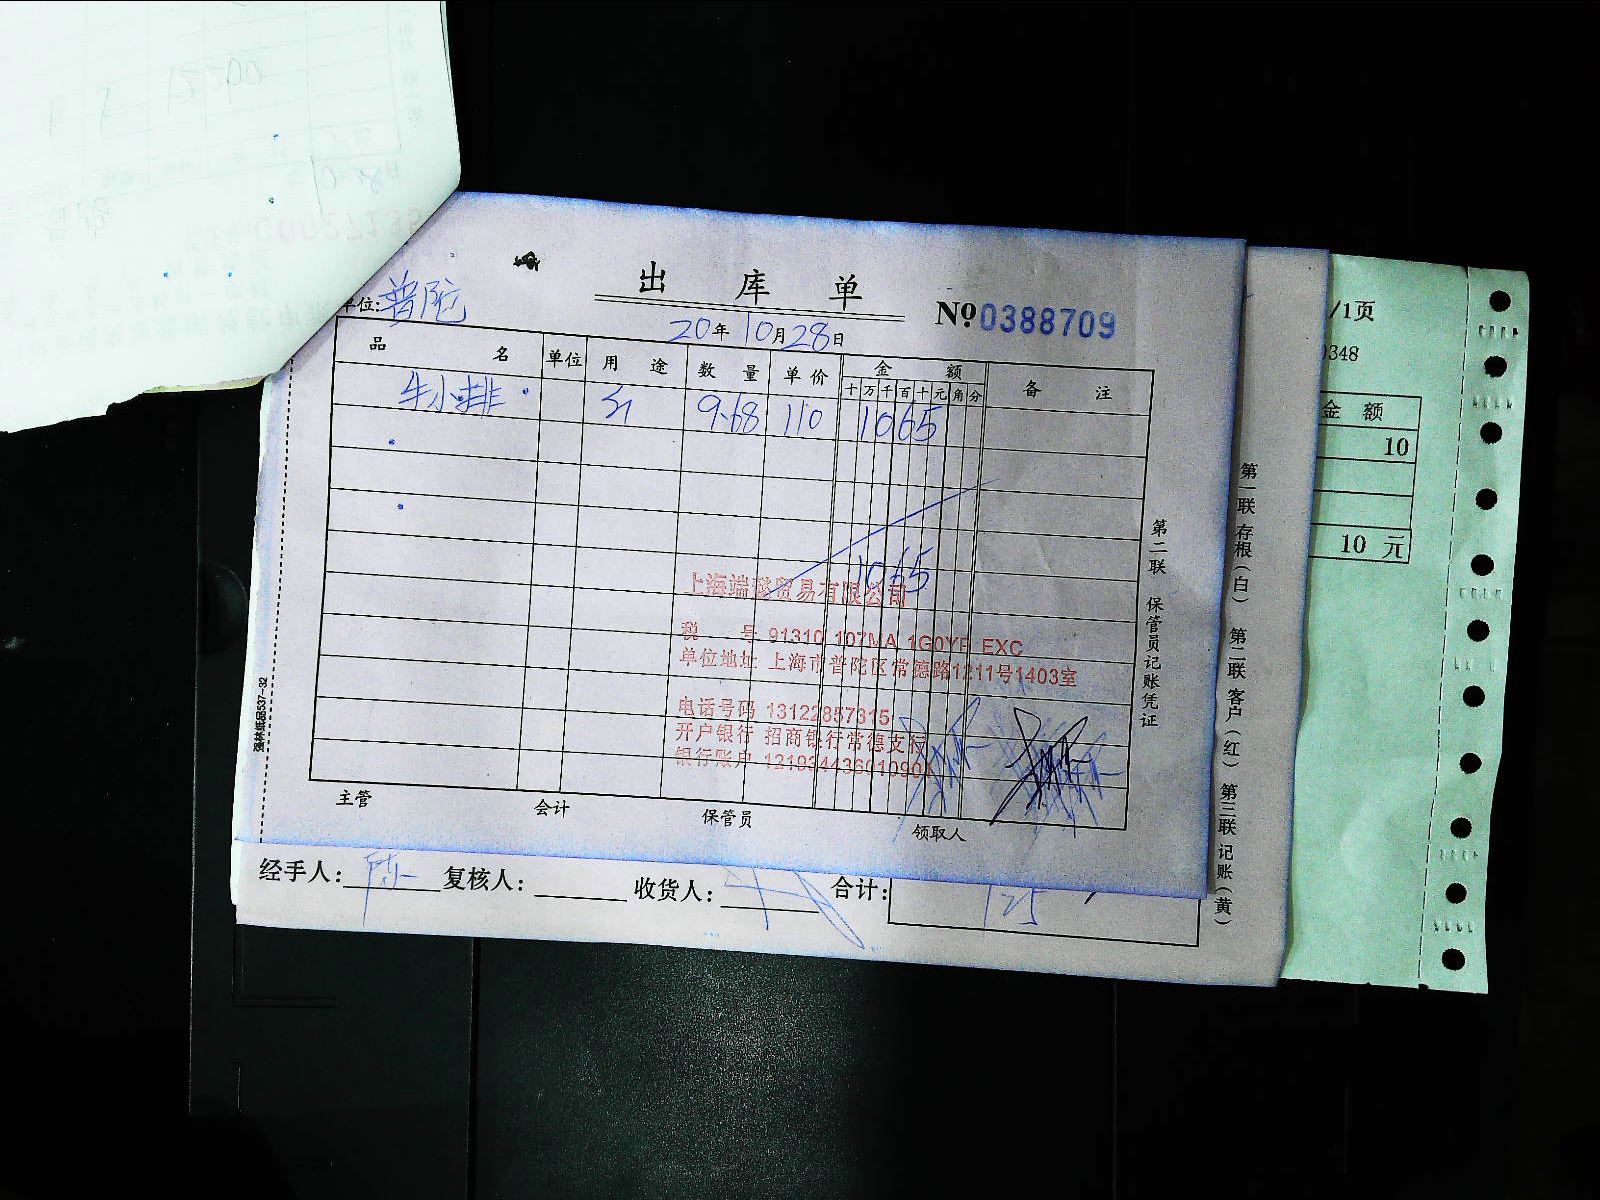 出库单
№0388709
单位:普陀
20年10月28日
品名 单位 用途 数量 单价 金额 备注
十万千百十元角分
牛小排 9.68 110 1065
1065
上海端懿贸易有限公司
税号 91310 107MA 1G0YP EXC
单位地址 上海市普陀区常德路1211号1403室
电话号码 13122857315
开户银行 招商银行常德支行
银行账户
主管 会计 保管员 领取人
第二联 保管员记账凭证
经手人: 陈 复核人: 收货人: 合计: 125
第一联 存根(白) 第二联 客户(红) 第三联 记账(黄)
/1页
0348
金额
10
10 元